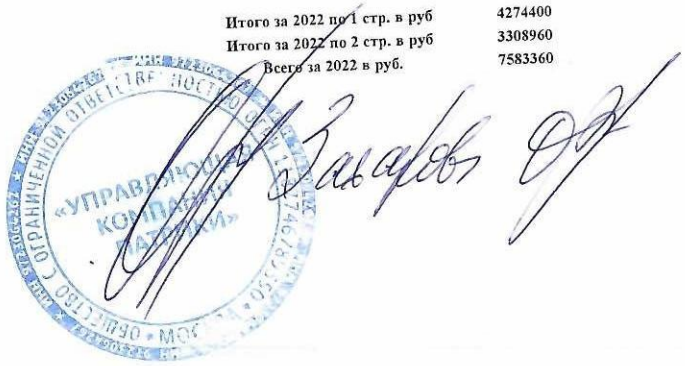 Итого за 2022 по 1 стр. в руб 4274400
Итого за 2022 по 2 стр. в руб 3308960
Всего за 2022 в руб. 7583360
ОБЩЕСТВО С ОГРАНИЧЕННОЙ ОТВЕТСТВЕННОСТЬЮ
«УПРАВЛЯЮЩАЯ
КОМПАНИЯ
ПАТРИКИ»